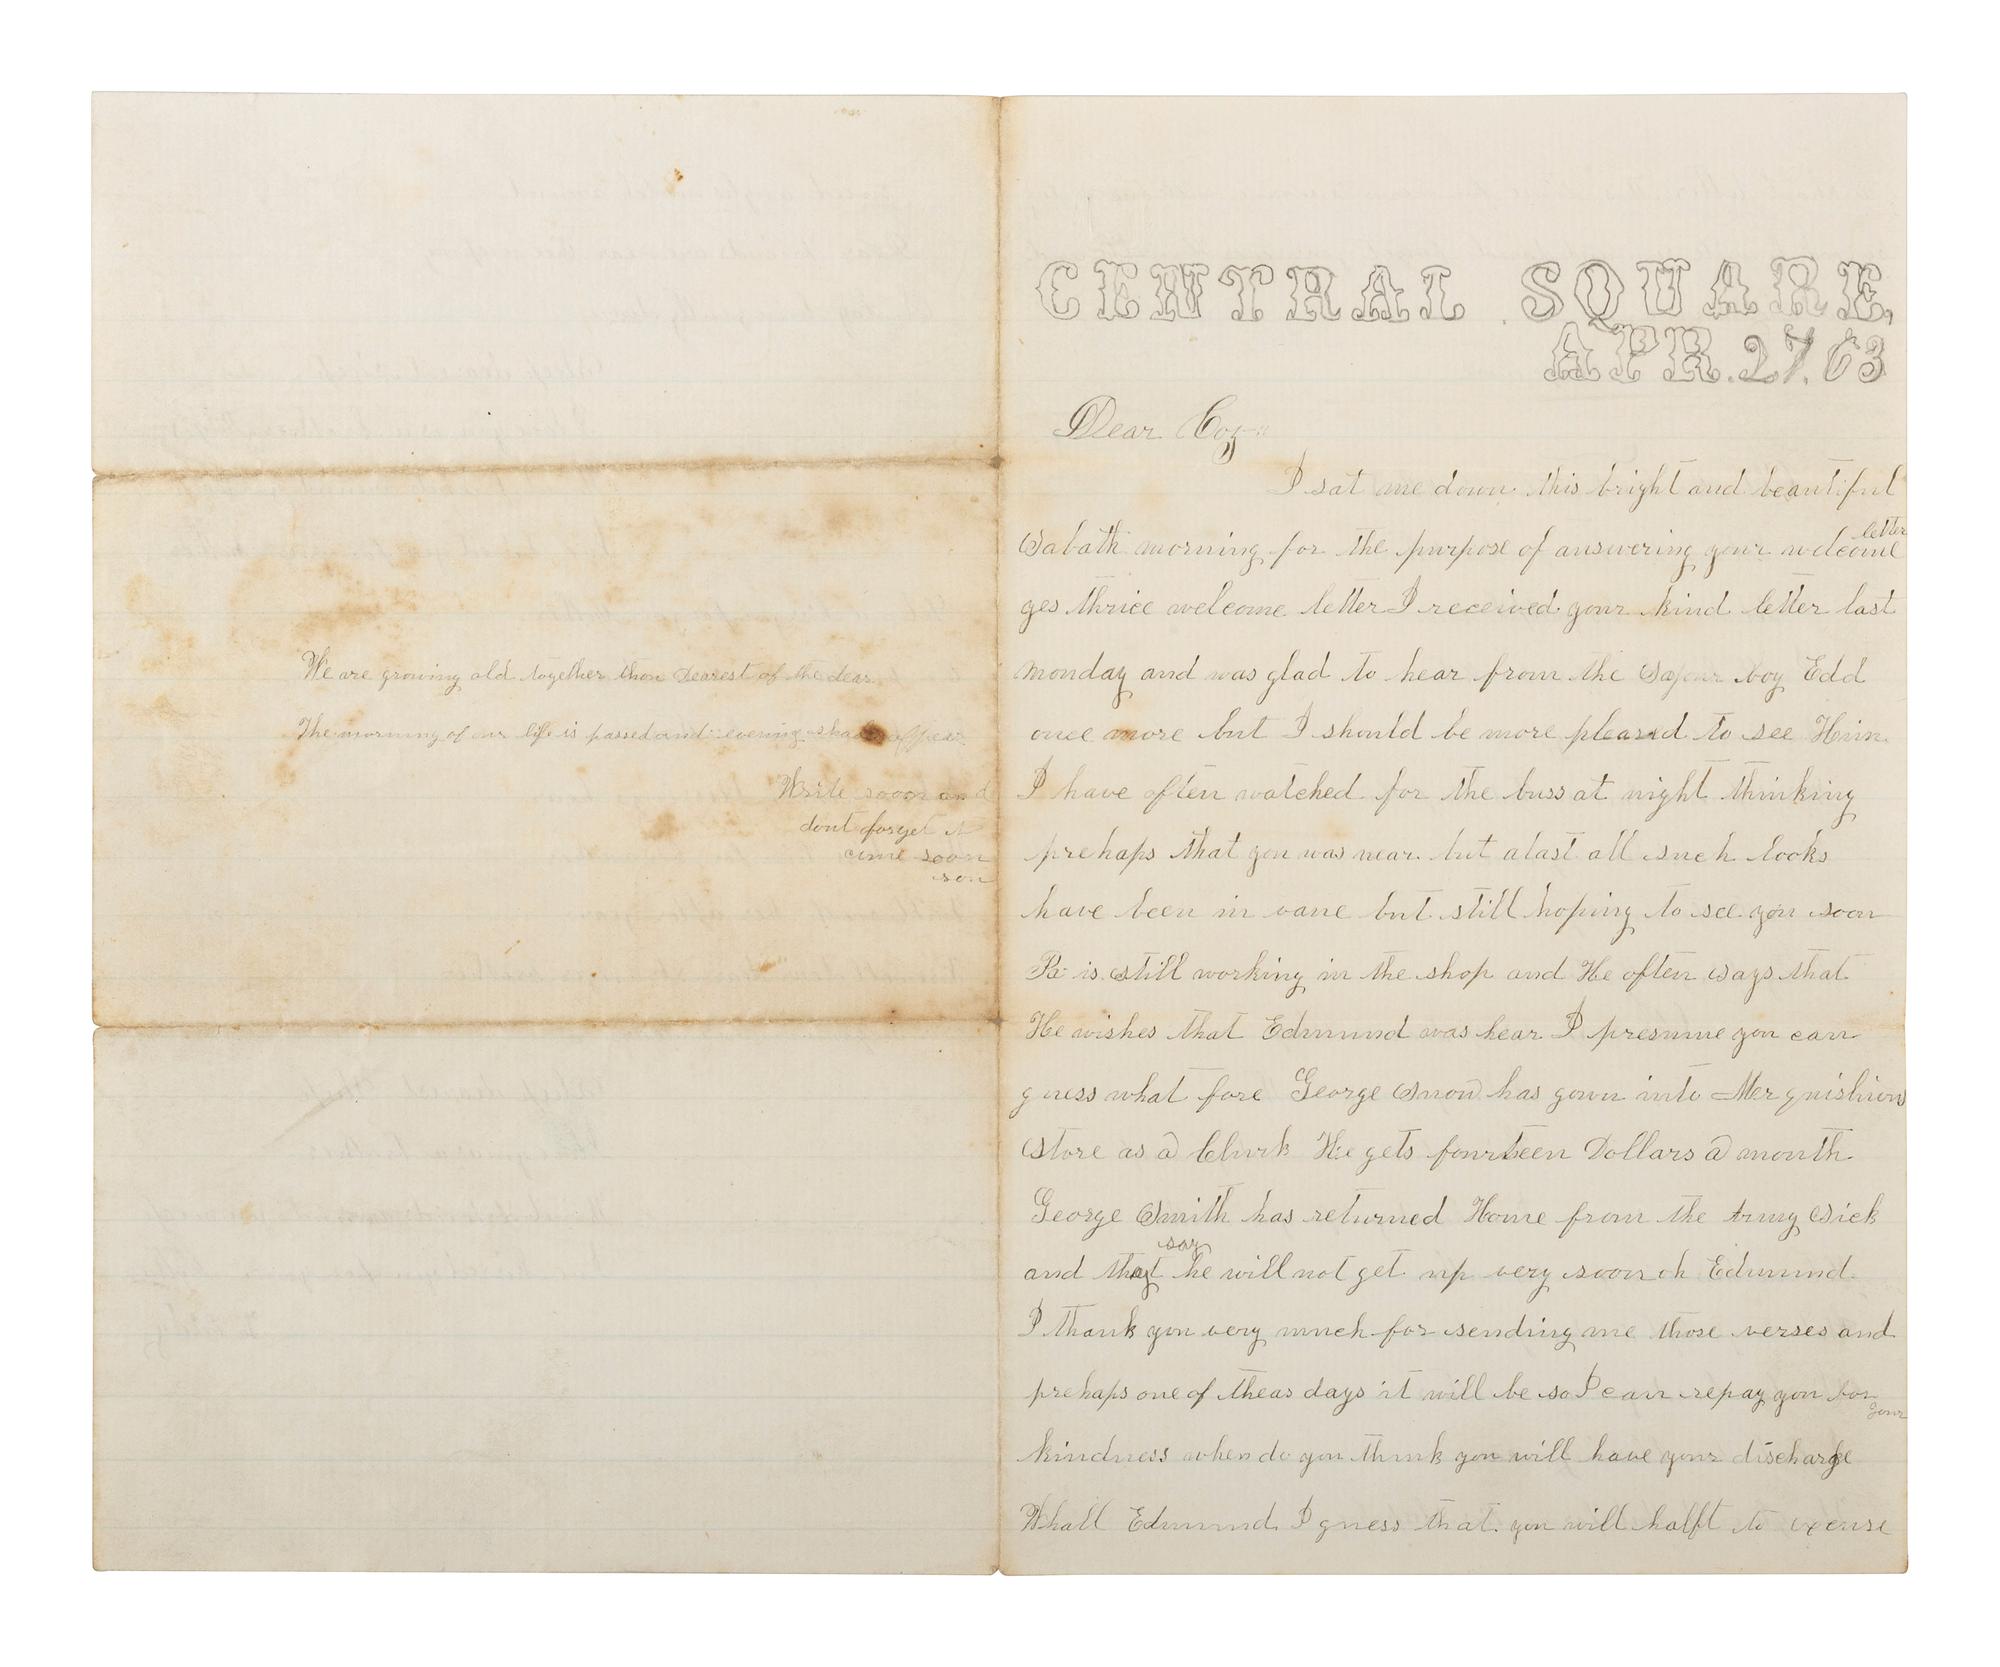 We are growing old together thou Dearest of the dear
The morning of our life is passed and evening shades appear
Write soon and
dont forget it
come soon
son
CENTRAL SQUARE,
APR. 27, 63
Dear Coz
I sat me down this bright and beautiful
Sabath morning for the purpose of answering your welcome letter
yes thrice welcome letter I received your kind letter last
monday and was glad to hear from the boy Edd
once more but I should be more pleased to see Him
I have often watched for the buss at night thinking
prehaps that you was near but alast all such looks
have been in vane but still hoping to see you soon
Pa is still working in the shop and He often says that
He wishes that Edmund was hear I presume you can
guess what fore George Snow has gown into Mer
store as a Clurk He gets fourteen Dollars a month
George Smith has returned Home from the army Sick
and they say he will not get up very soon oh Edmund
I thank you very much for sending me those verses and
prehaps one of theas days it will be so I can repay you for your
kindness when do you think you will have your discharge
Whall Edmund I guess that you will halft to excuse